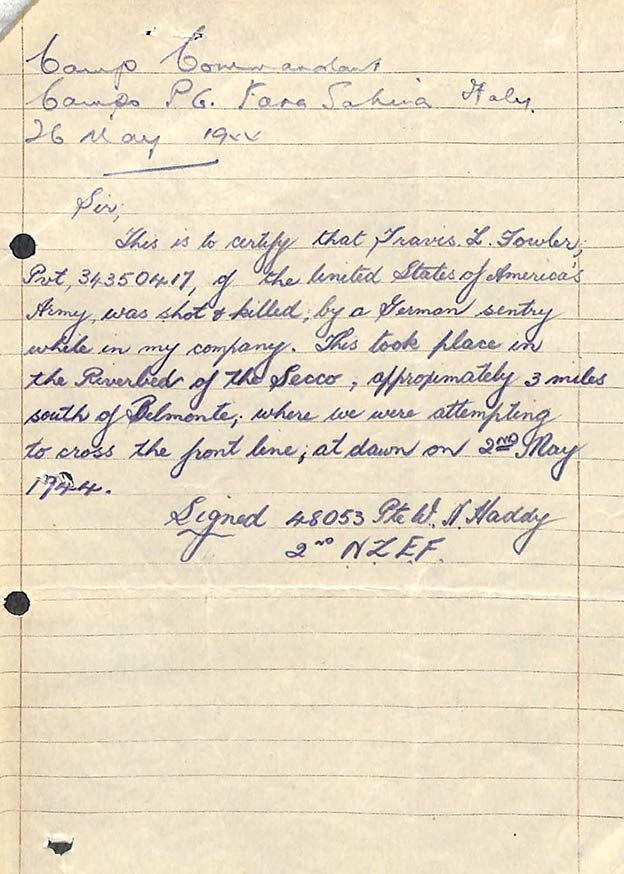 Camp Commandant
Camps P.G. Fara Sabina Italy.
26 May 1944
Sir,
This is to certify that Travis. L. Fowler;
Pvt, 34350417, of the United States of America's
Army, was shot & killed, by a German sentry
while in my company. This took place in
the Riverbed of the Secco, approximately 3 miles
south of Belmonte; where we were attempting
to cross the front line; at dawn on 2nd May
1944.
Signed 48053 Pte W. N. Haddy
2nd N.Z.E.F.